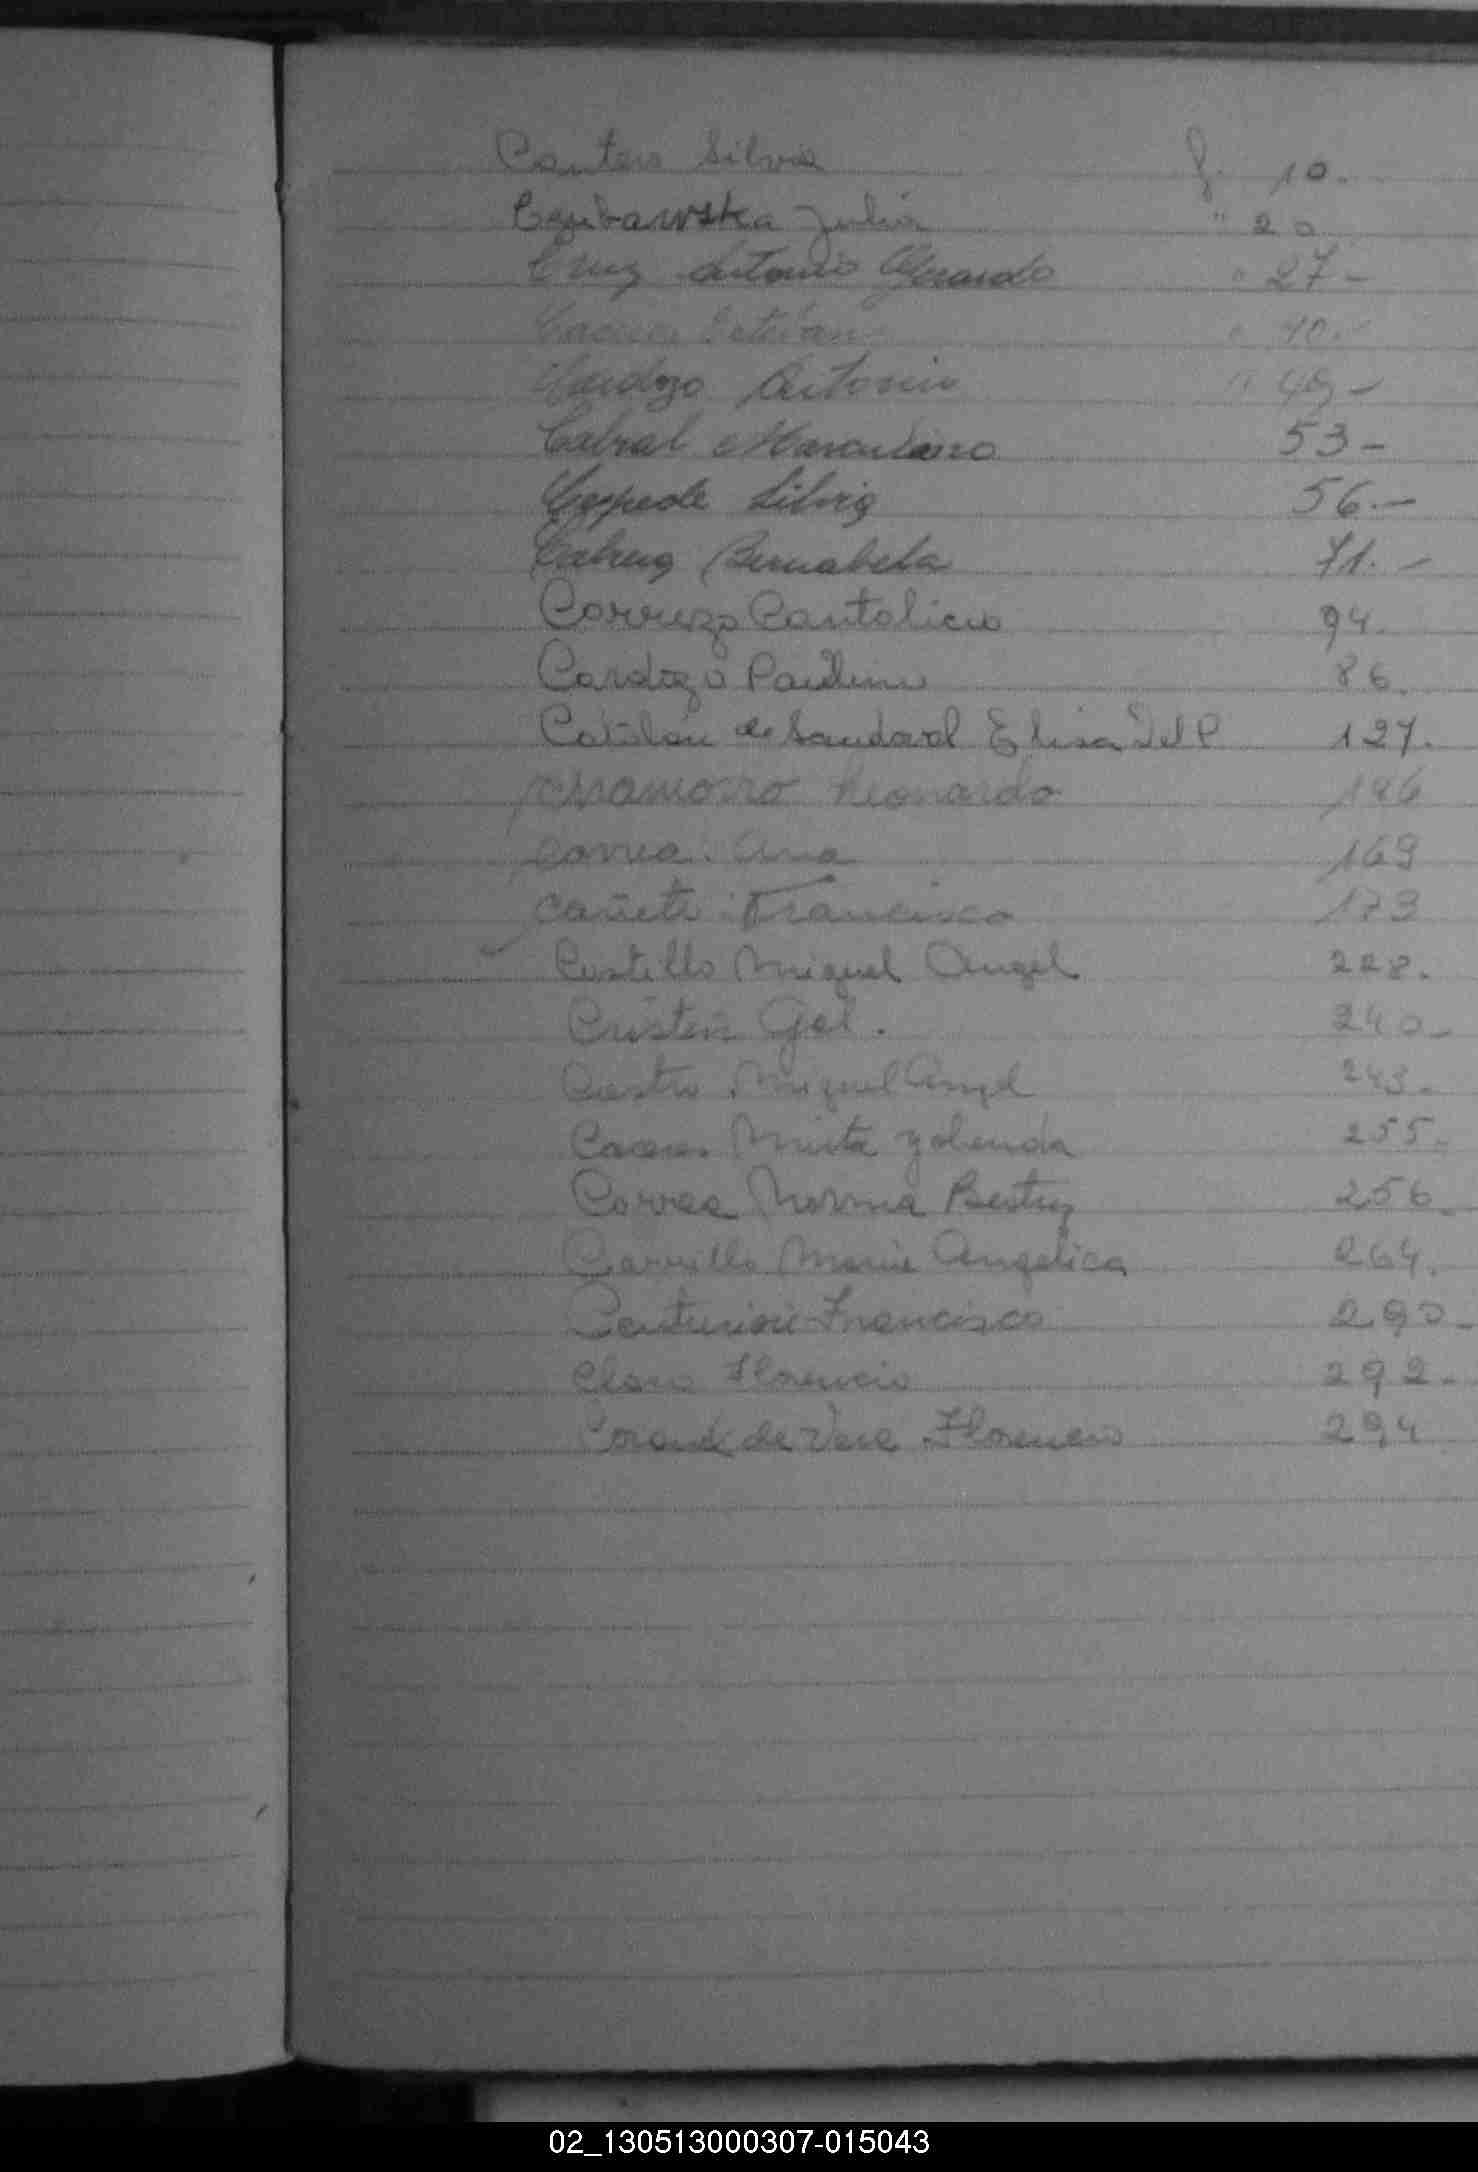 Cantero Silvia f. 10.
Czubawska Julia " 20
Cruz Antonio Gerardo " 27-
Caceres Esteban " 40.-
Cardozo Antonio " 49-
Cabral 53-
Cespede Silvia 56.-
Cabrera Bernabela 71.-
Correzo Cantalicio 94.
Cardozo Paulino 86.
Catalán de Sandoval Elisa Del C 127.
chamorro Leonardo 146
correa. Ana 169
cañete. Francisco 173
Castillo Miguel Angel 228.
Cristen Gel. 240-
Castro Miguel Angel 243.
Caceres Mirta Yolenda 255.
Correa Norma Beatriz 256
Carrillo Maria Angelica 264.
Centurion Francisco 290-
Claro Florencio 292-
de Vera Florencio 294
02_130513000307-015043